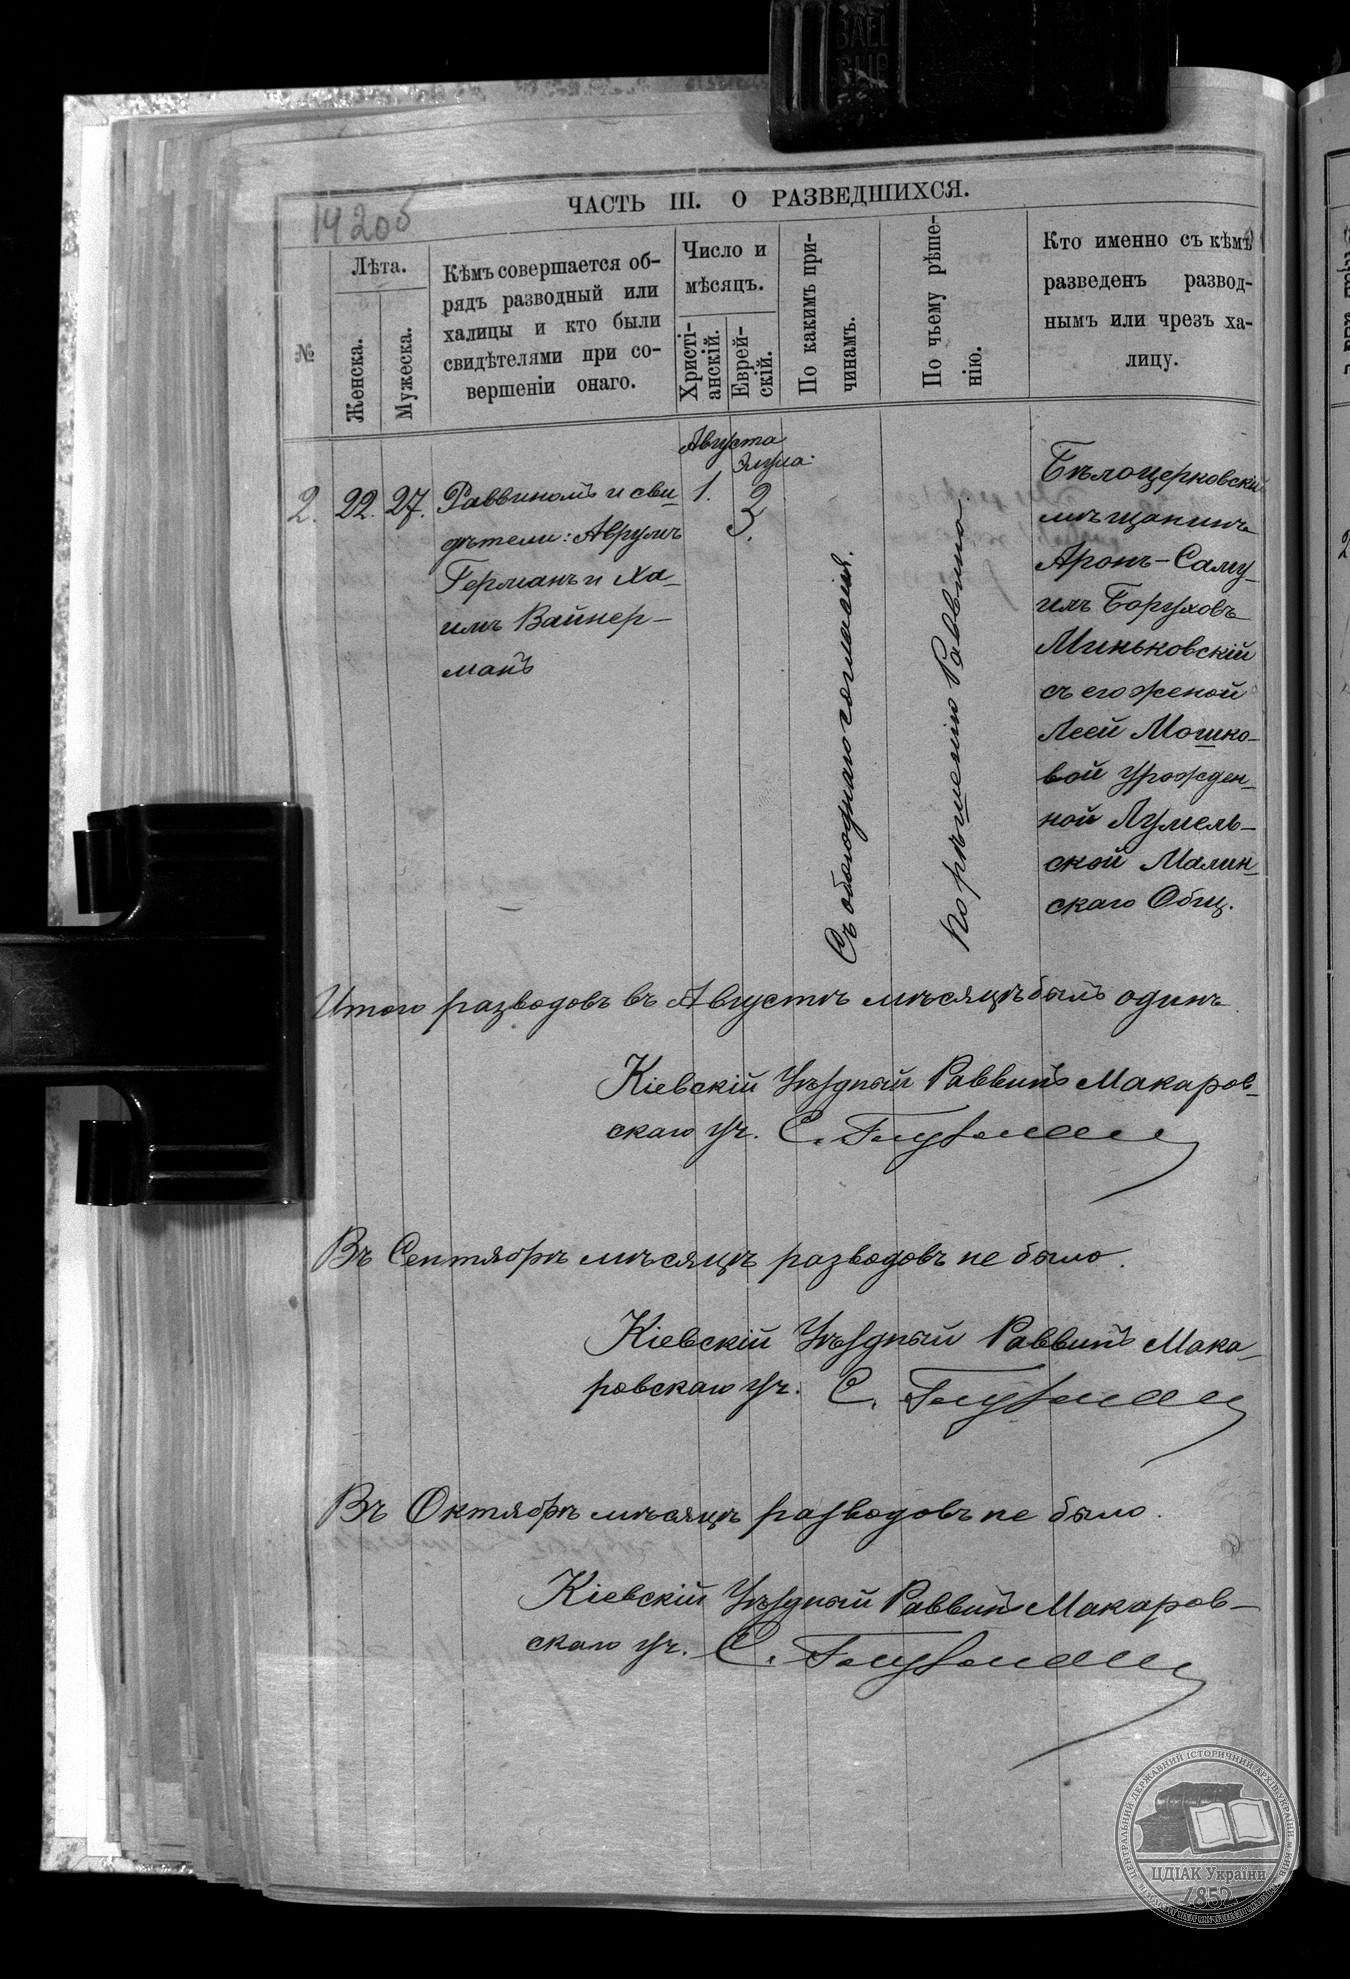 ЧАСТЬ III. О РАЗВЕДШИХСЯ.
№
Лѣта.
Женска.
Мужеска.
Кѣмъ совершается об-
рядъ разводный или
халицы и кто были
свидѣтелями при со-
вершеніи онаго.
Число и
мѣсяцъ.
Христі-
анскій.
Еврей-
скій.
По какимъ при-
чинамъ.
По чьему рѣше-
нію.
Кто именно съ кѣмъ
разведенъ развод-
нымъ или чрезъ ха-
лицу.
2.
22.
27.
Раввиномъ и сви-
дѣтели: Аврумъ
Германъ и Ха-
имъ Вайнер-
манъ
Августа
1.
Элула
3.
Съ обоюднаго согласія.
По рѣшенію Раввина.
Бѣлоцерковскій
мѣщанинъ
Аронъ-Саму-
илъ Боруховъ
Миньковскій
съ его женой
Леей Мошко-
вой урожден-
ной Лумель-
ской Малин-
скаго Общ.
Итого разводовъ въ Августѣ мѣсяцѣ былъ одинъ
Кіевскій Уѣздный Раввинъ Макаров-
скаго уч. С.
Въ Сентябрѣ мѣсяцѣ разводовъ не было.
Кіевскій Уѣздный Раввинъ Мака-
ровскаго уч. С.
Въ Октябрѣ мѣсяцѣ разводовъ не было.
Кіевскій Уѣздный Раввинъ Макаров-
скаго уч. С.
ЦЕНТРАЛЬНИЙ ДЕРЖАВНИЙ ІСТОРИЧНИЙ АРХІВ УКРАЇНИ, м. КИЇВ
ЦДІАК України
1852